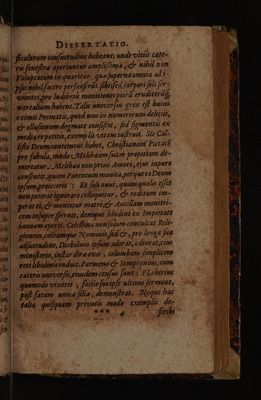 DISSERTATIO.
sceleratorum consuetudine habeant; unde vitiis cate-
ris fenestra aperiuntur amplissima, & nihil non
Voluptatum in quaritur. qua superna omnia ad i-
psos nihil facere persuaserint. sibi sed corpori soli ser-
vientes, pro ludibriis monitiones piorum eruditorumq;
mortalium habent. Talis universus grex est huius
eximii Poematis, quod non in numerorum deliciis,
& allusionum dogmate consistit, sed segmentis ex
media præsentis, exemplis vitam instruit. Sic Cal-
listo Deum contemtui habet, Christianam Pietatẽ
pro fabula, modo Melibæam suam propitiam de-
mereatur. Melibæa non prius Averni, ejus ignara
consensit, quam Parentum monita, perque ea Deum
ipsum, projecerit: Et solutavi, quam qualis esset
non poterat ignorare colloquitur, & reditum im-
perat ei, & mentitur matri, & Ancillam menitri-
cem insuper servat, denique libidini ex Impietate
januam aperit. Cælestina non solum concalcat Reli-
gionem, cultumque Numinis, sed &, pro longa sua
adsuetudine, Diabolum ipsum adorat, adjurat, ejus
ministerio, constar dira avis, columbam simplicem
reti libidinis induit. Parmeno & Sempronius, cum
cæteris universis, ejusdem census sunt. Pleberius
quomodo vixerit, facile suo ipse ultimo sermone,
post fatum unicæ filiæ, demonstrat. Neque hæc
talia quisquam privatis modo exemplis de-
*** 4 scribi